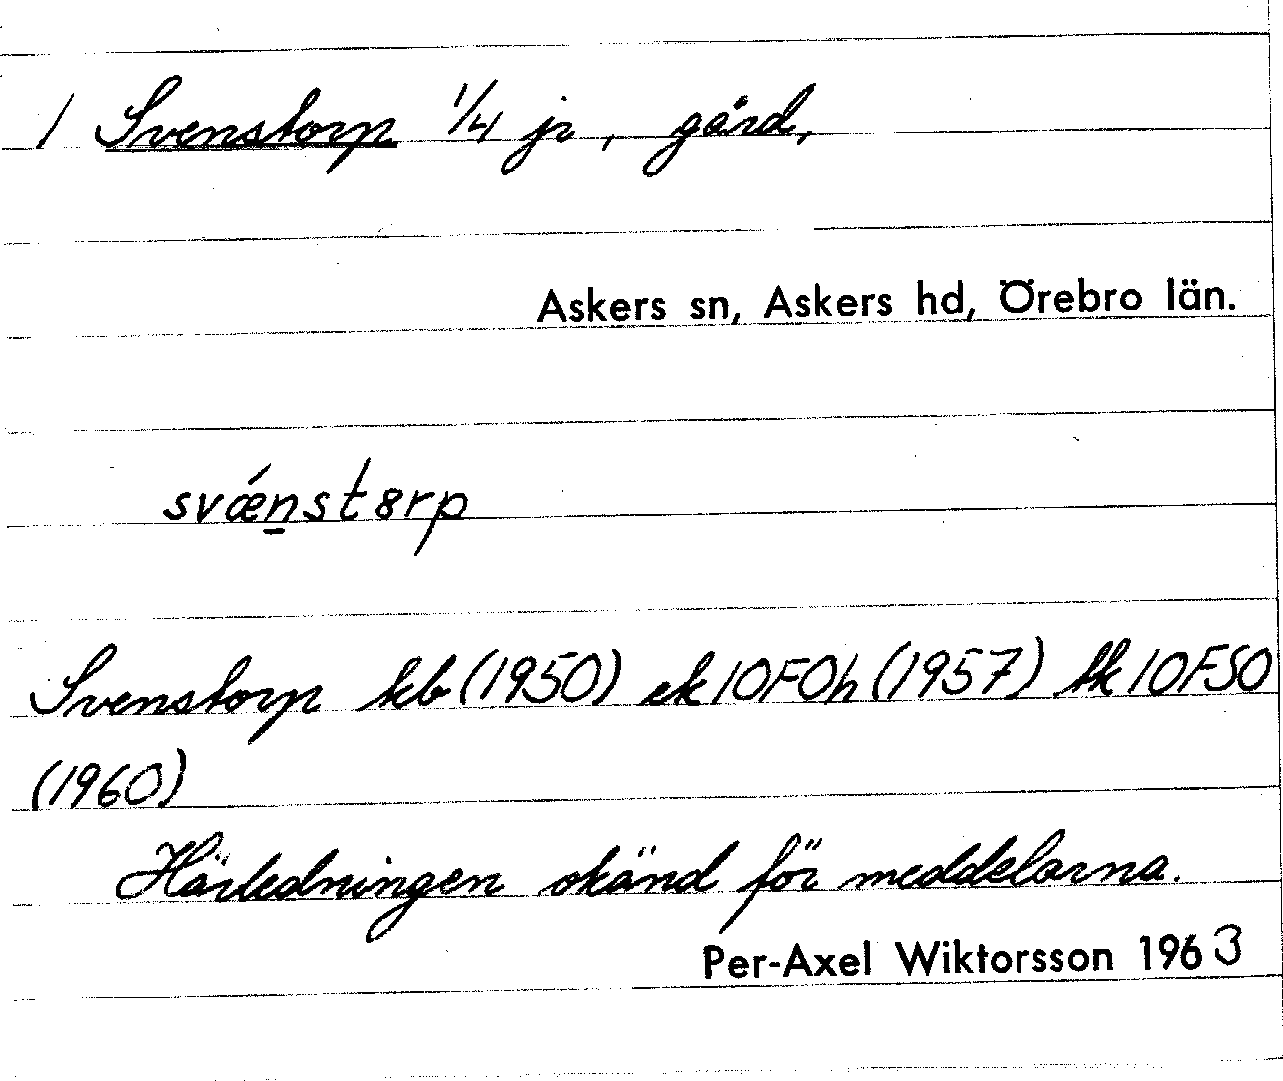 / Svenstorp 1/4 jr, gård,
Askers sn, Askers hd, Örebro län.
svǽn̲st8rp
Svenstorp kb (1950) ek 10F0h (1957) tk 10FSO
(1960)
Härledningen okänd för meddelarna.
Per-Axel Wiktorsson 1963